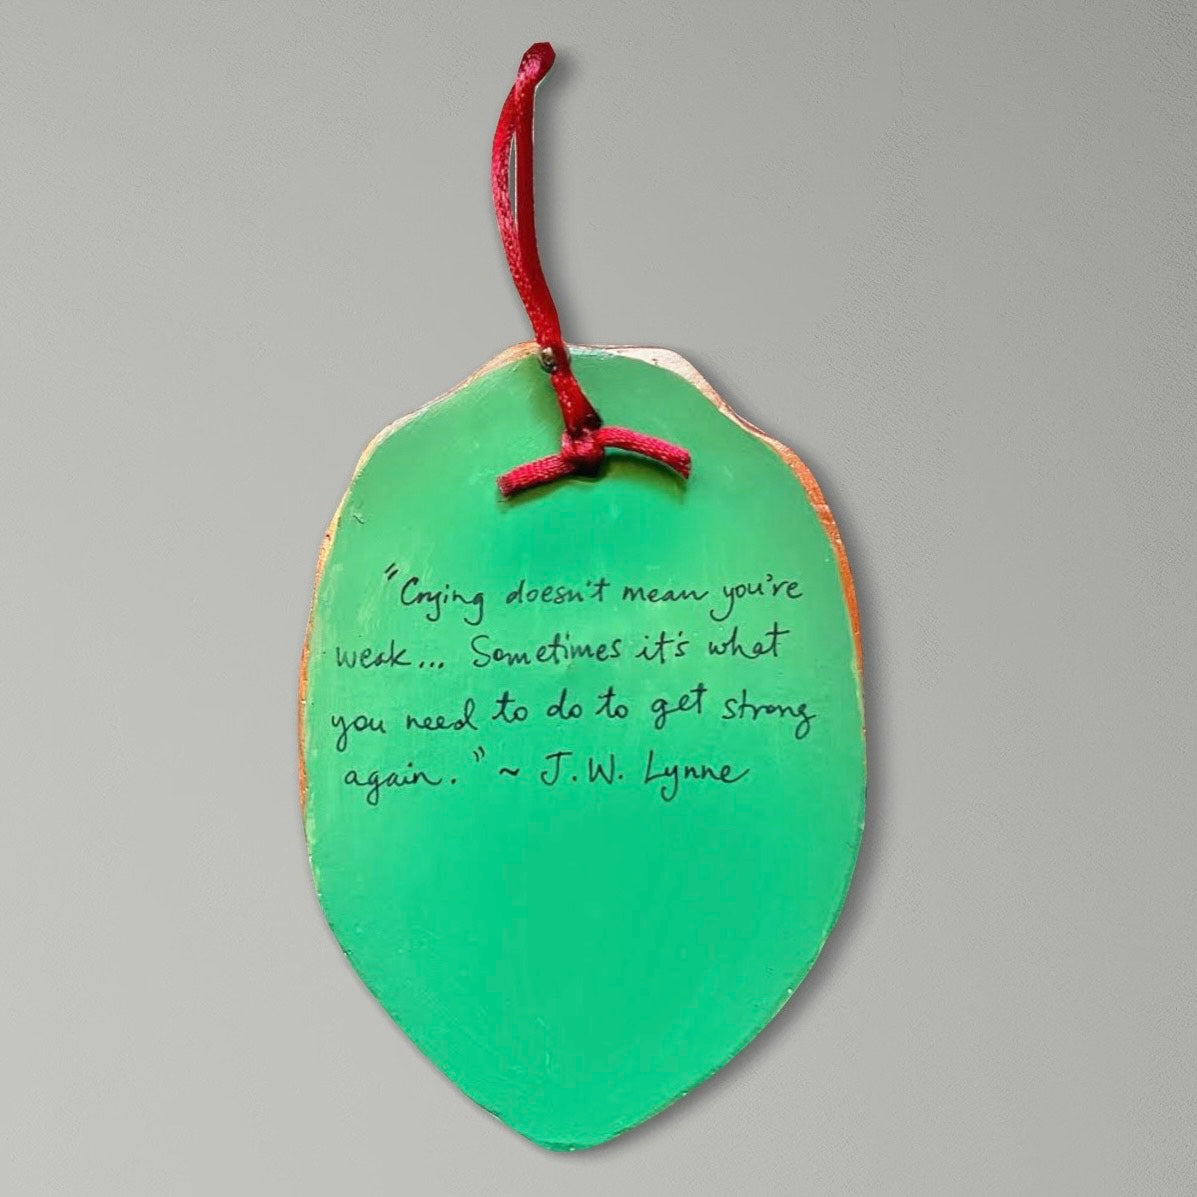 "Crying doesn't mean you're
weak... Sometimes it's what
you need to do to get strong
again." ~ J.W. Lynne